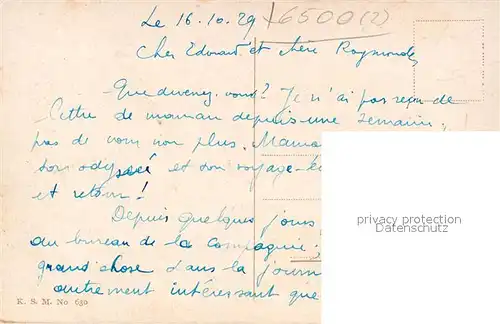 Le 16.10.29
6500(2)
Cher Edouard et chère Raymonde
Que devenez vous? Je n'ai pas reçu de
lettre de maman depuis une semaine,
pas de vous non plus. Mama
son odyssée et son voyage
et retour!
Depuis quelques jours
au bureau de la compagnie
grand chose dans la journ
autrement intéressant que
privacy protection
Datenschutz
K. S. M. No 630